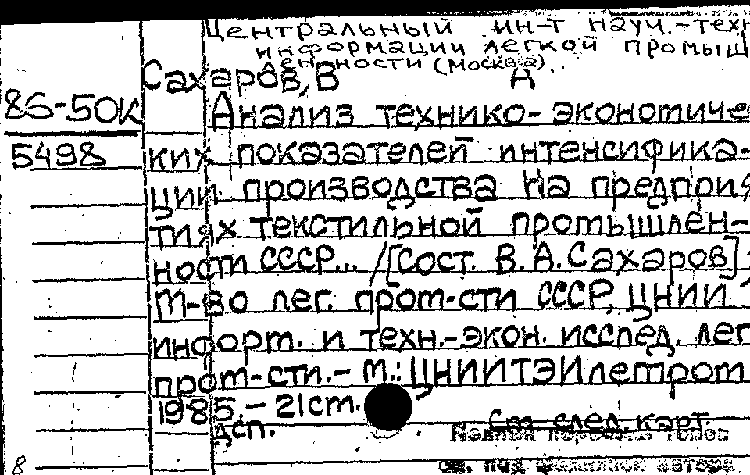 Центральный ин-т науч.-техн
информации легкой промыш
ленности (Москва)
Сахаров, В А
86-50к
Анализ технико-экономичес
5498
ких показателей интенсифика-
ции производства на предприя
тиях текстильной промышлен-
ности СССР... /[Сост. В. А. Сахаров];
М-во лег. пром-сти СССР, ЦНИИ
информ. и техн.-экон. исслед. лег
пром-сти. - М.: ЦНИИТЭИлегпром
1985. - 21 см.
Дсп.
См. след. карт.
Полный перечень томов
см. под
8